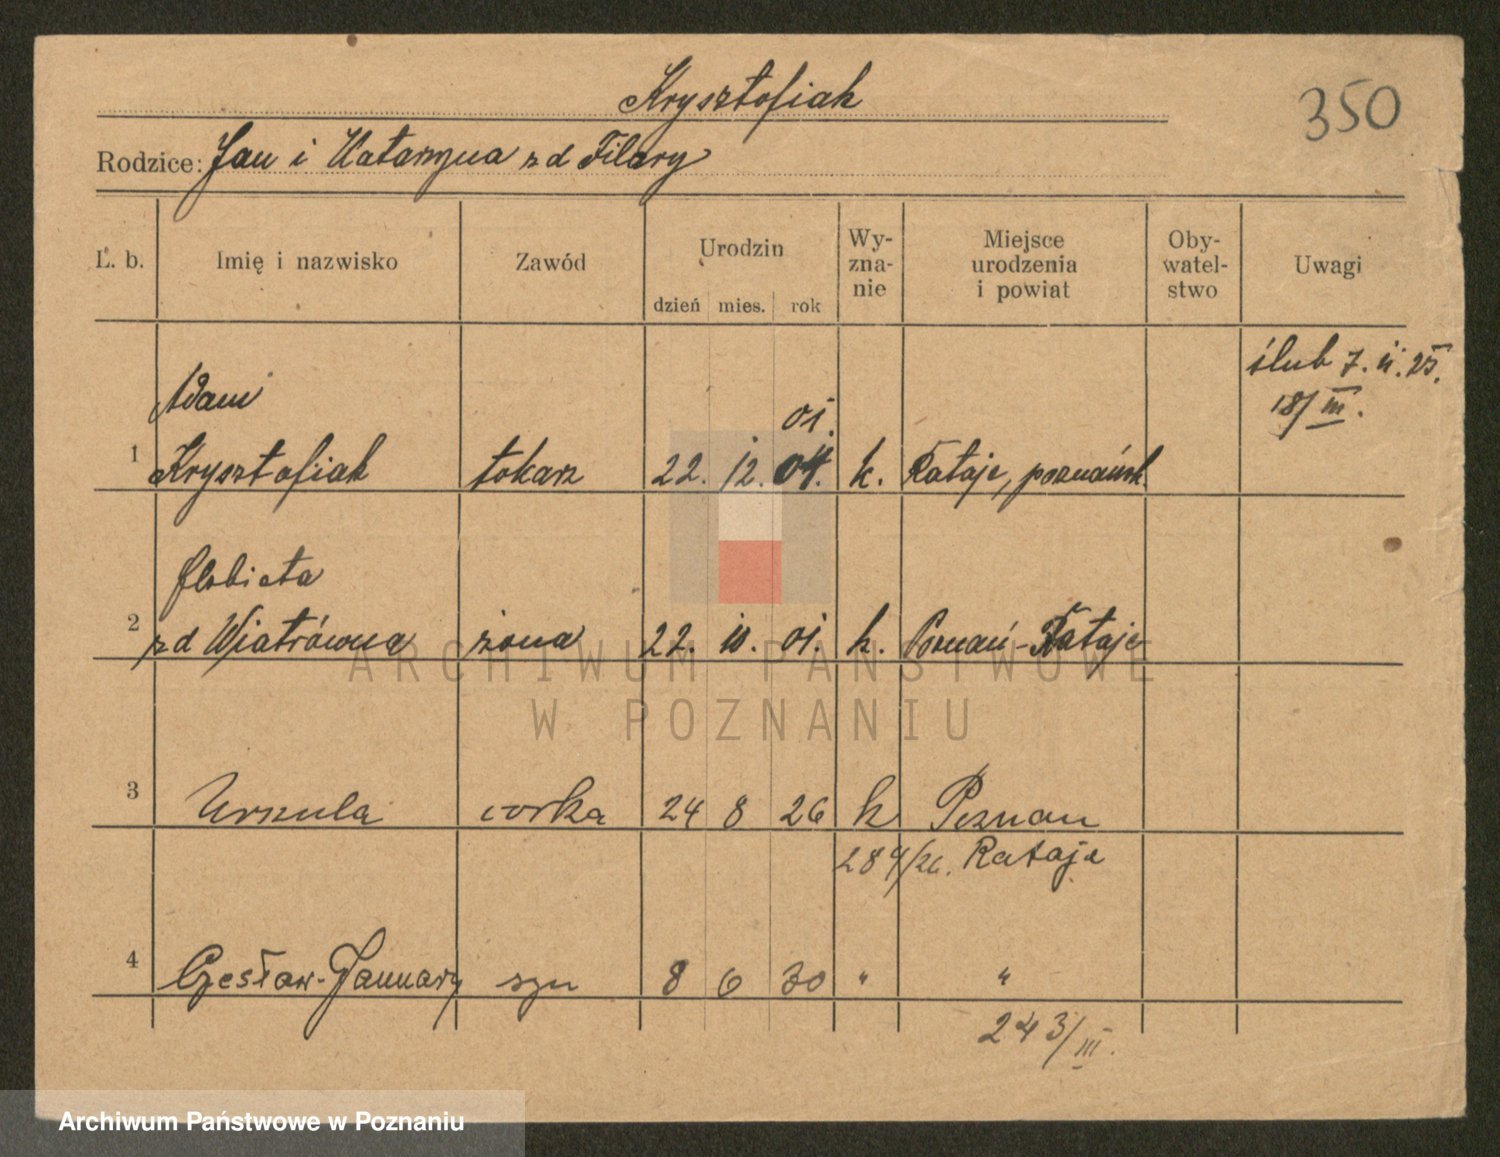 Krysztofiak
350
Rodzice: Jan i Katarzyna z d Filary
L. b. Imię i nazwisko Zawód Urodzin dzień mies. rok Wy-zna-nie Miejsce urodzenia i powiat Oby-watel-stwo Uwagi
ślub 7. II. 25.
18/III.
Adam
01.
1 Krysztofiak tokarz 22. 12. 04. k. Rataje, poznańsk.
Elżbieta
2 z d Wiatrówna żona 22. 10. 01. k. Poznań-Rataje
ARCHIWUM PAŃSTWOWE
W POZNANIU
3 Urszula corka 24 8 26 k Poznan
289/26. Rataje
4 Czesław-Januar​y syn 8 6 30 " "
243/III.
Archiwum Państwowe w Poznaniu